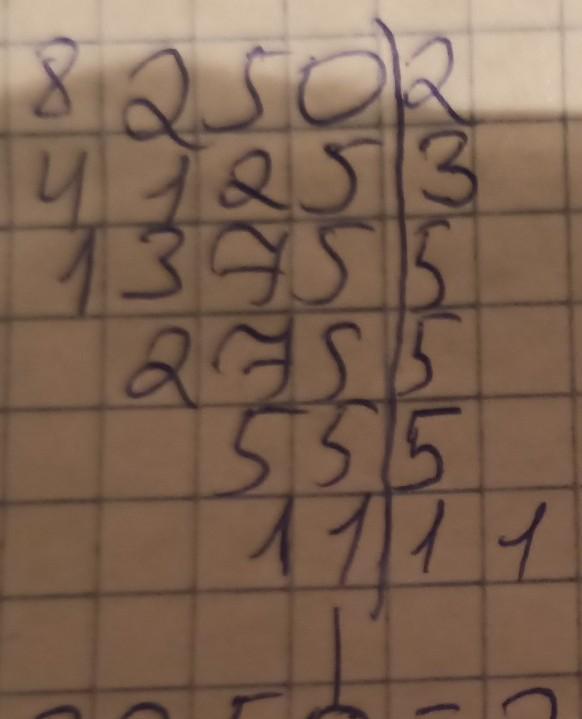 8250|2
4125|3
1375|5
275|5
55|5
11|11
1